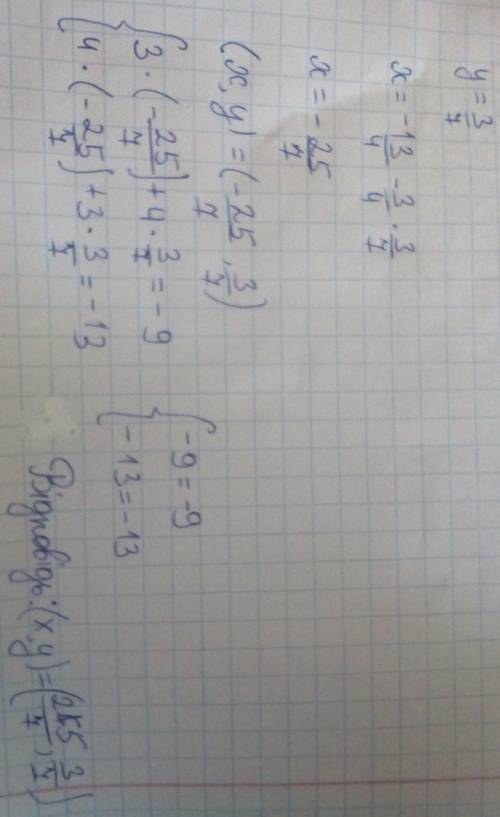 y = 3/7
x = -13/4 - 3/4 · 3/7
x = - 25/7
(x, y) = (- 25/7, 3/7)
{ 3 · (- 25/7) + 4 · 3/7 = - 9
{ 4 · (- 25/7) + 3 · 3/7 = - 13
{ -9 = -9
{ - 13 = -13
Відповідь: (x, y) = ( 25/7, 3/7)